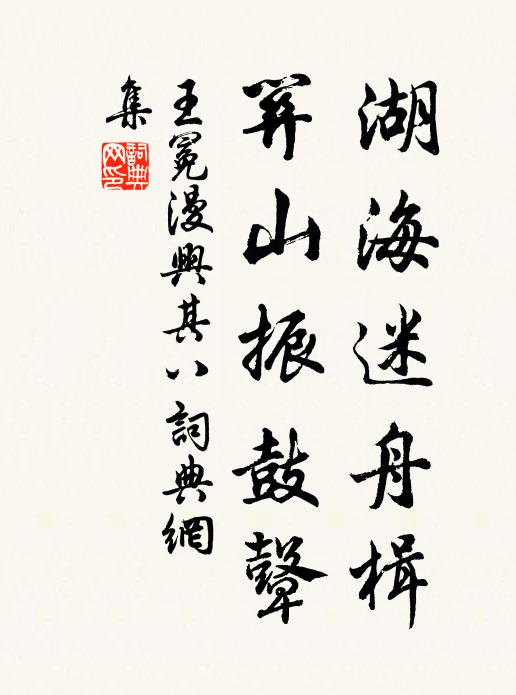 湖海迷舟楫
關山振鼓鼙
王冕漫興其八詞典網
集
詞典
网印